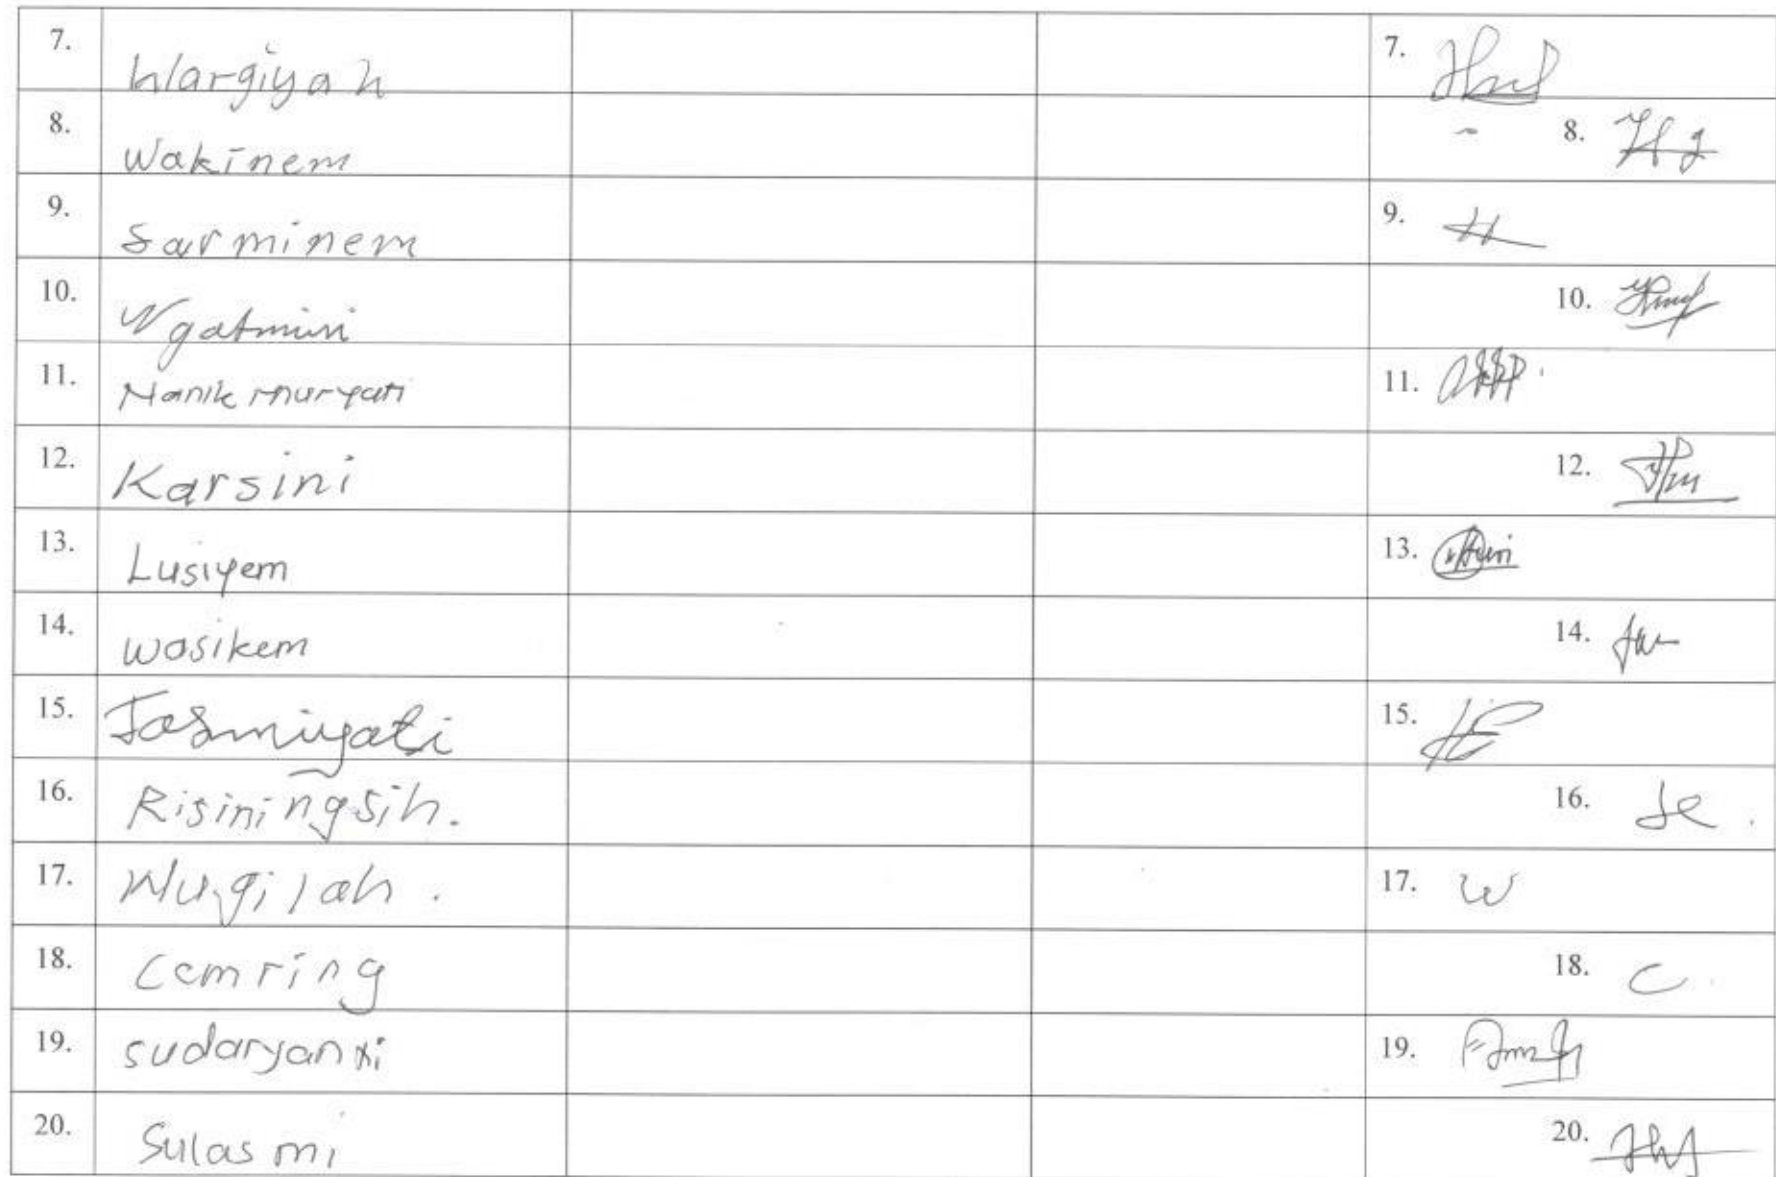 7. Wargiyah 7.
8. Wakinem 8.
9. Sarminem 9.
10. Ngatmini 10.
11. Nanik muryati 11.
12. Karsini 12.
13. Lusiyem 13.
14. wasikem 14.
15. 15.
16. Risiningsih. 16.
17. Wugilah. 17. W
18. Cemring 18. C
19. sudaryanti 19.
20. Sulasmi 20.